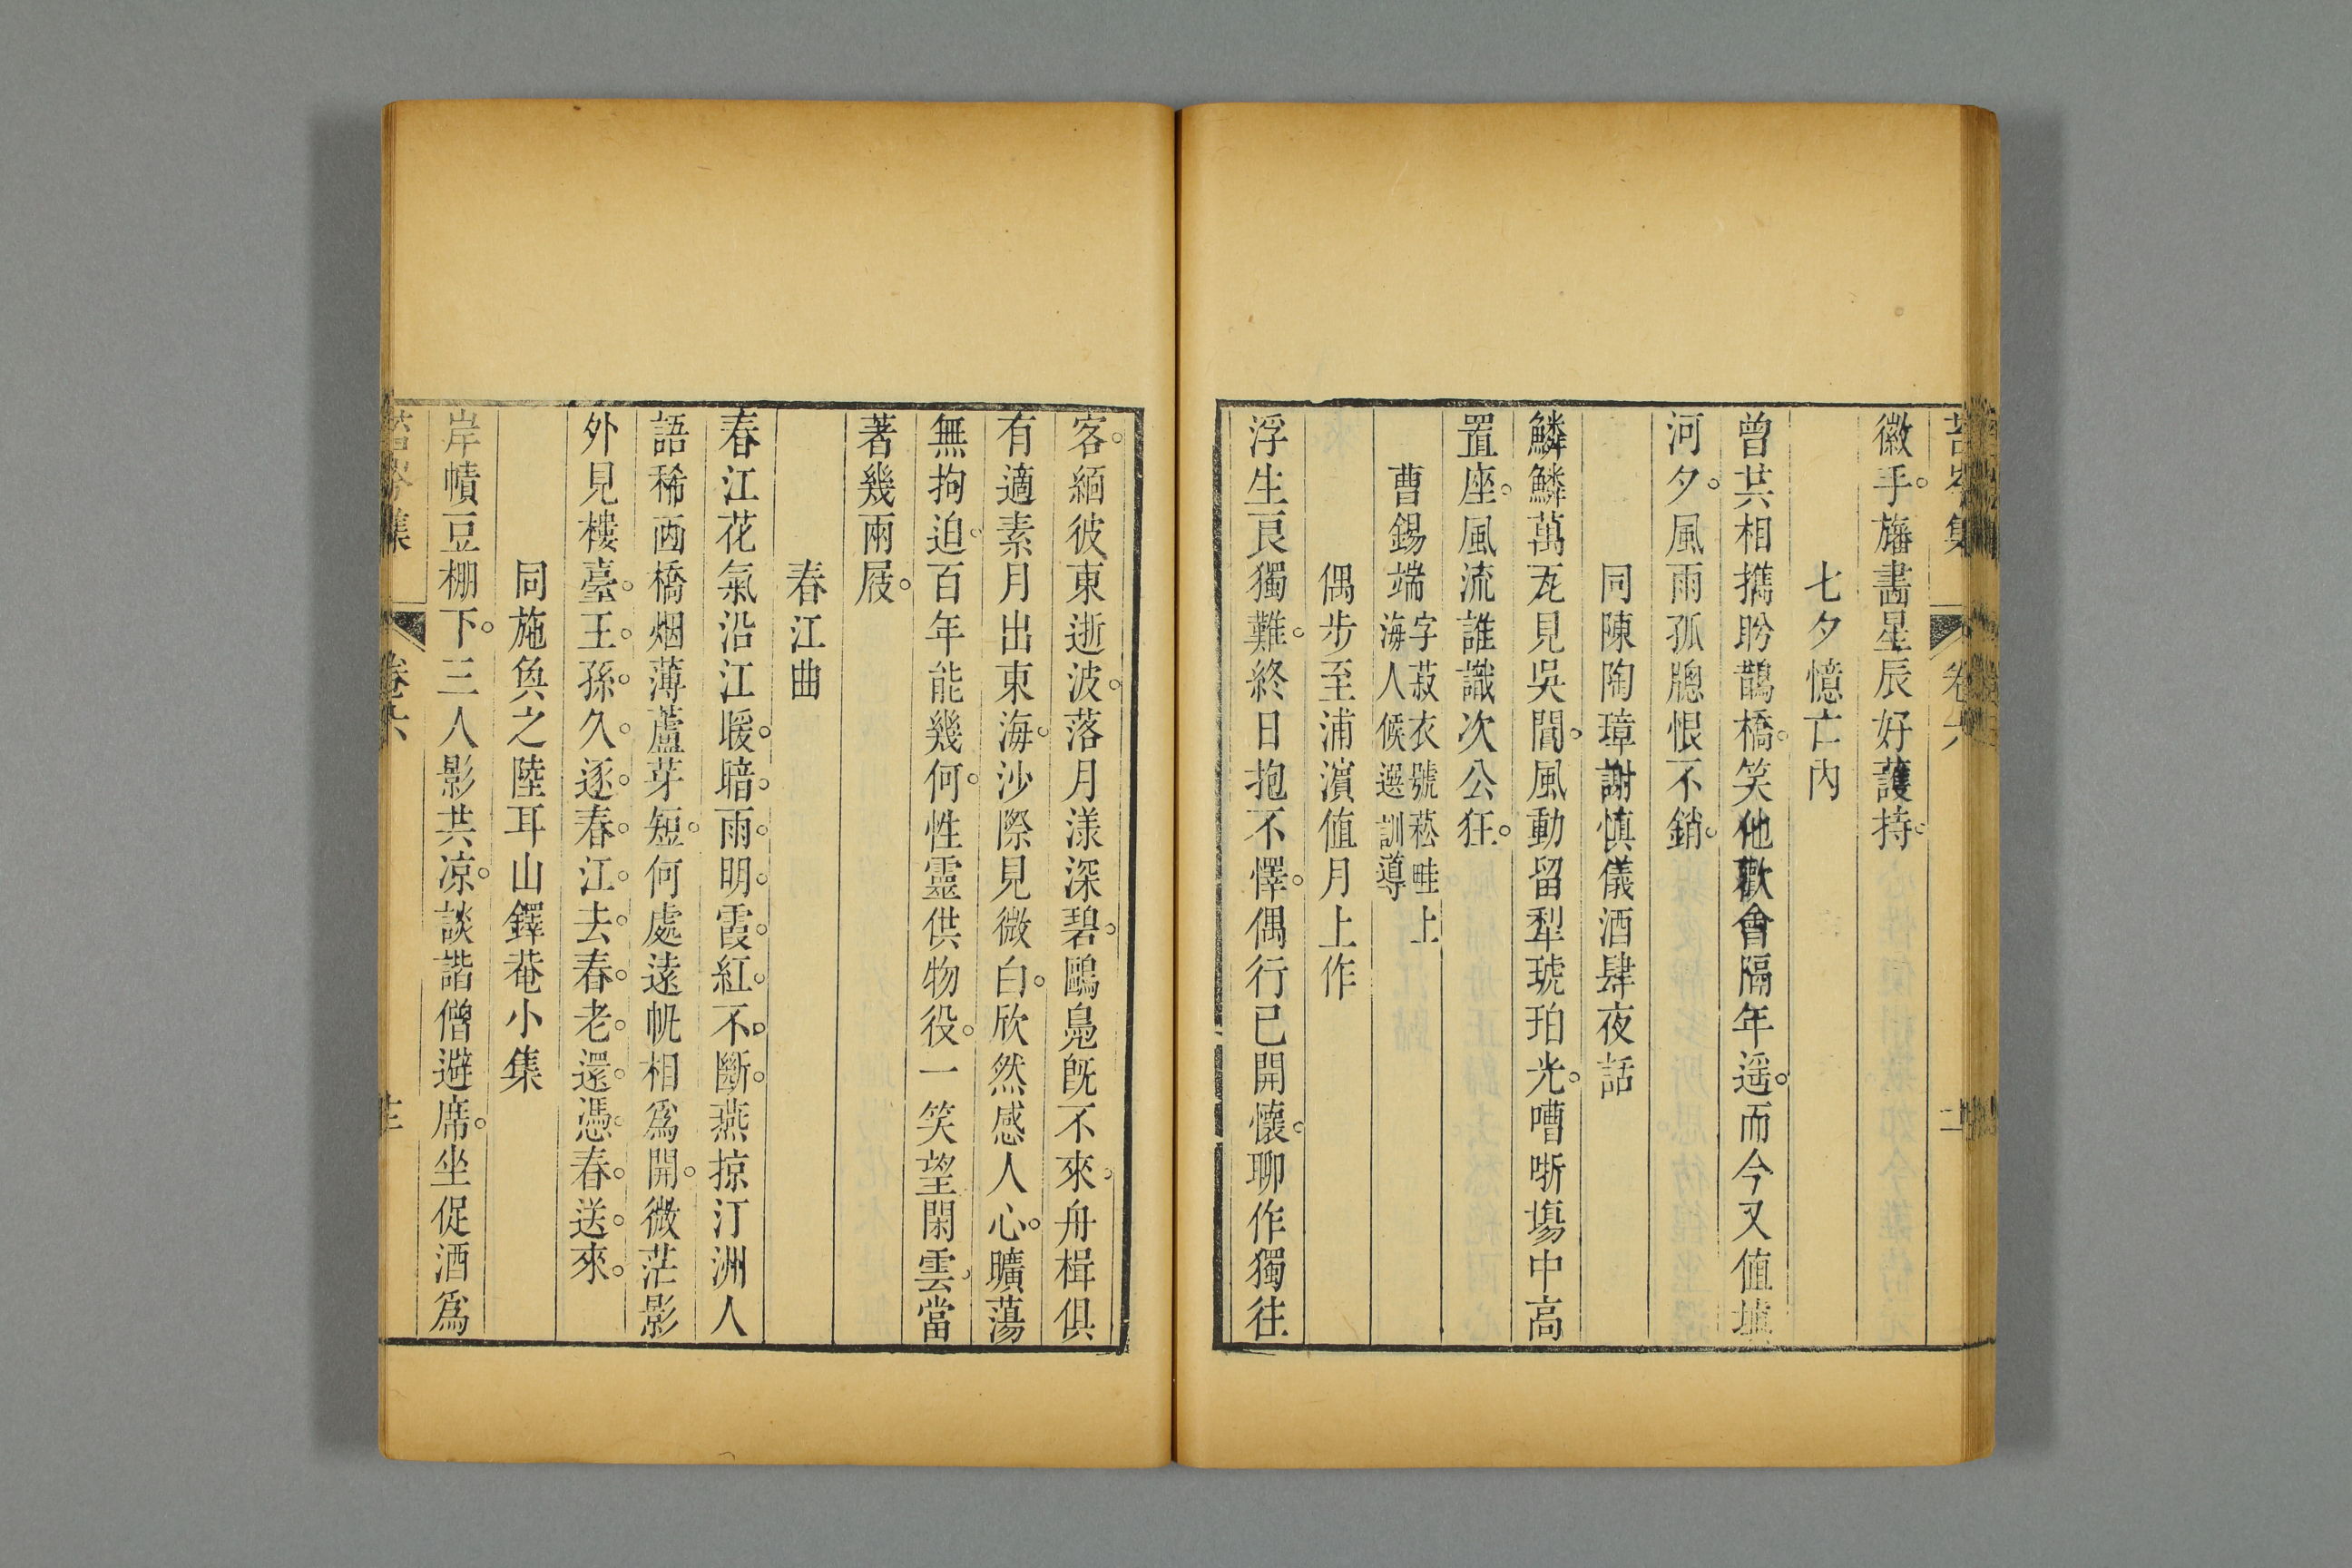 苔岑集 卷六 二
徽手旛畵星辰好護持
七夕憶亡內
曾共相攜盻鵲橋笑他歡會隔年遥而今又值墟
河夕風雨孤牕恨不銷
同陳陶璋謝慎儀酒肆夜話
鱗鱗萬瓦見吳閶風動留犁琥珀光嘈哳塲中高
置座風流誰識次公狂
曹錫端字菽衣號菘畦上海人候選訓導
偶步至浦濵值月上作
浮生良獨難終日抱不懌偶行已開懷聊作獨往
客緬彼東逝波落月漾深碧鷗鳧旣不來舟楫俱
有適素月出東海沙際見微白欣然感人心曠蕩
無拘迫百年能幾何性靈供物役一笑望閑雲當
著幾兩屐
春江曲
春江花氣沿江暖暗雨明霞紅不斷燕掠汀洲人
語稀西橋烟薄蘆芽短何處遠帆相爲開微茫影
外見樓臺王孫久逐春江去春老還憑春送來
同施奐之陸耳山鐸菴小集
岸幘豆棚下三人影共凉談諧僧避席坐促酒爲
苔岑集 卷六